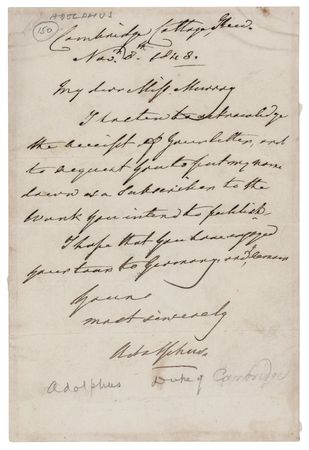 ADOLPHUS
150
Cambridge Cottage Kew.
Novr. 8th. 1848.
My dear Miss Murray
I hasten to acknowledge
the receipt of your letter, and
to request you to put my name
down as a Subscriber to the
Work you intend to publish.
I hope that you have enjoyed
your tour to Germany, and I remain
Yours
most sincerely
Adolphus.
Adolphus Duke of Cambridge